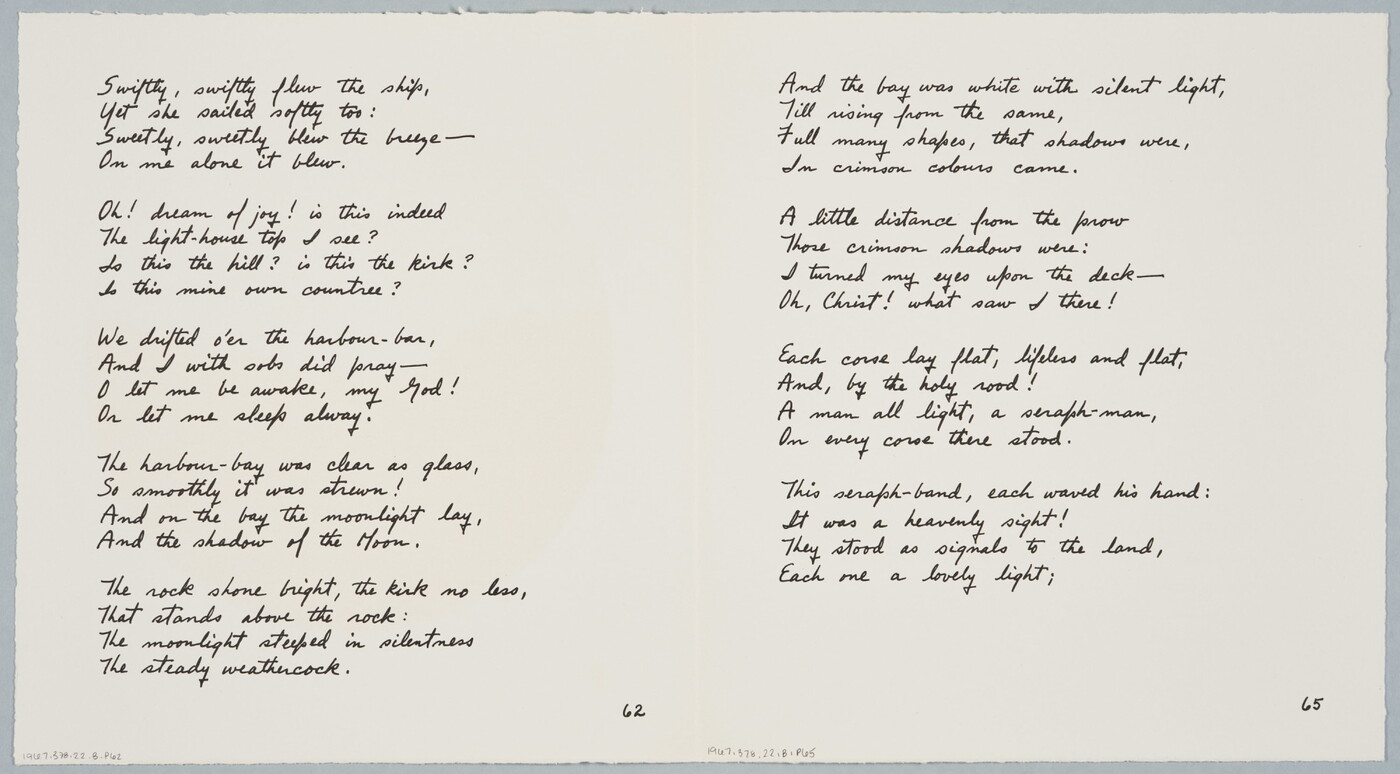 Swiftly, swiftly flew the ship,
Yet she sailed softly too:
Sweetly, sweetly blew the breeze—
On me alone it blew.
Oh! dream of joy! is this indeed
The light-house top I see?
Is this the hill? is this the kirk?
Is this mine own countree?
We drifted o'er the harbour-bar,
And I with sobs did pray—
O let me be awake, my God!
Or let me sleep alway.
The harbour-bay was clear as glass,
So smoothly it was strewn!
And on the bay the moonlight lay,
And the shadow of the Moon.
The rock shone bright, the kirk no less,
That stands above the rock:
The moonlight steeped in silentness
The steady weathercock.
62
1967.378.22.B.P62
And the bay was white with silent light,
Till rising from the same,
Full many shapes, that shadows were,
In crimson colours came.
A little distance from the prow
Those crimson shadows were:
I turned my eyes upon the deck—
Oh, Christ! what saw I there!
Each corse lay flat, lifeless and flat,
And, by the holy rood!
A man all light, a seraph-man,
On every corse there stood.
This seraph-band, each waved his hand:
It was a heavenly sight!
They stood as signals to the land,
Each one a lovely light;
65
1967.378.22.B.P65